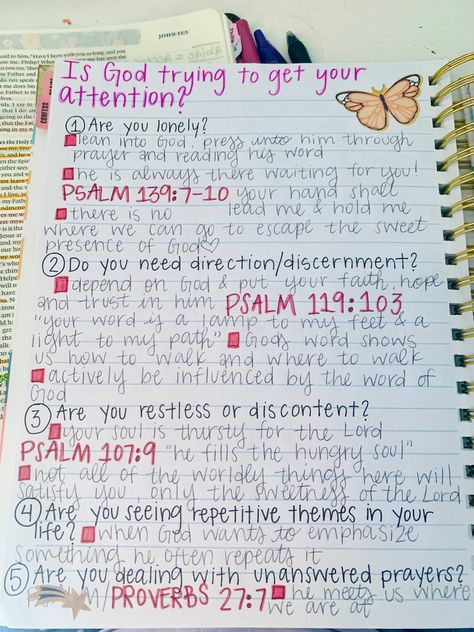 JOHN 15:1
Is God trying to get your
attention?
① Are you lonely?
lean into God, press unto him through
prayer and reading his word
he is always there waiting for you!
PSALM 139:7-10 your hand shall
there is no lead me & hold me
where we can go to escape the sweet
presence of God♡
② Do you need direction/discernment?
depend on God & put your faith, hope
and trust in him PSALM 119:103
"your word is a lamp to my feet & a
light to my path" Gods word shows
us how to walk and where to walk
actively be influenced by the word of
God
③ Are you restless or discontent?
your soul is thirsty for the Lord
PSALM 107:9 "he fills the hungry soul"
not all of the worldly things here will
satisfy you, only the sweetness of the Lord
④ Are you seeing repetitive themes in your
life? when God wants to emphasize
something he often repeats it
⑤ Are you dealing with unanswered prayers?
PROVERBS 27:7 he meets us where
we are at